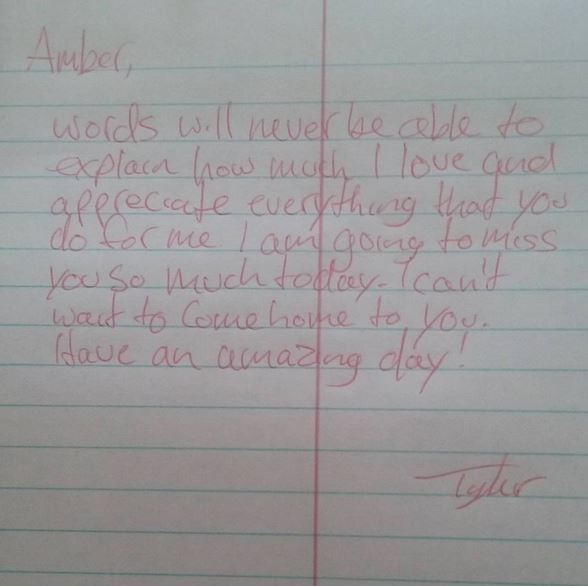 Amber,
words will never be able to
explain how much I love and
appreciate everything that you
do for me I am going to miss
you so much today. I can't
wait to come home to you.
Have an amazing day!
Tyler